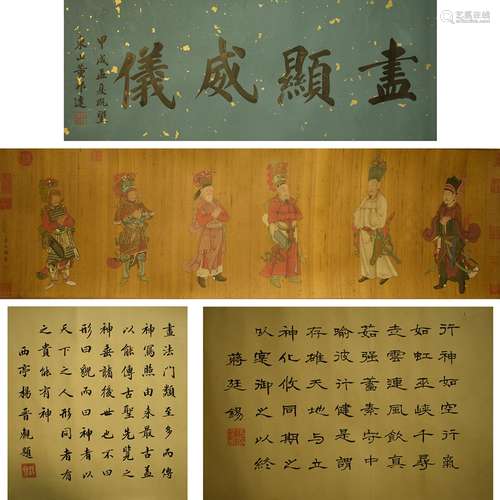 盡顯威儀
甲戌孟夏既望
東山董邦達
畫法門類至多而傳
神寫照由來最古蓋
以能傳古聖先賢之
神垂諸後世也不曰
形曰貌而曰神者以
天下之人形同者有
之貴能有神
西亭楊晉觀題
行神如空行氣
如虹巫峽千尋
走雲連風飲真
茹強蓄素守中
喻彼行健是謂
存雄天地與立
神化攸同期之
以實御之以終
蔣廷錫